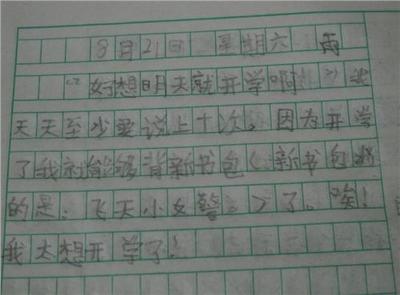 8月21日 星期六 雨
“好想明天就开学啊!”我
天天至少要说上十次。因为开学
了我就能够背新书包(新书包
的是:飞天小女警。)了。唉!
我太想开学了!